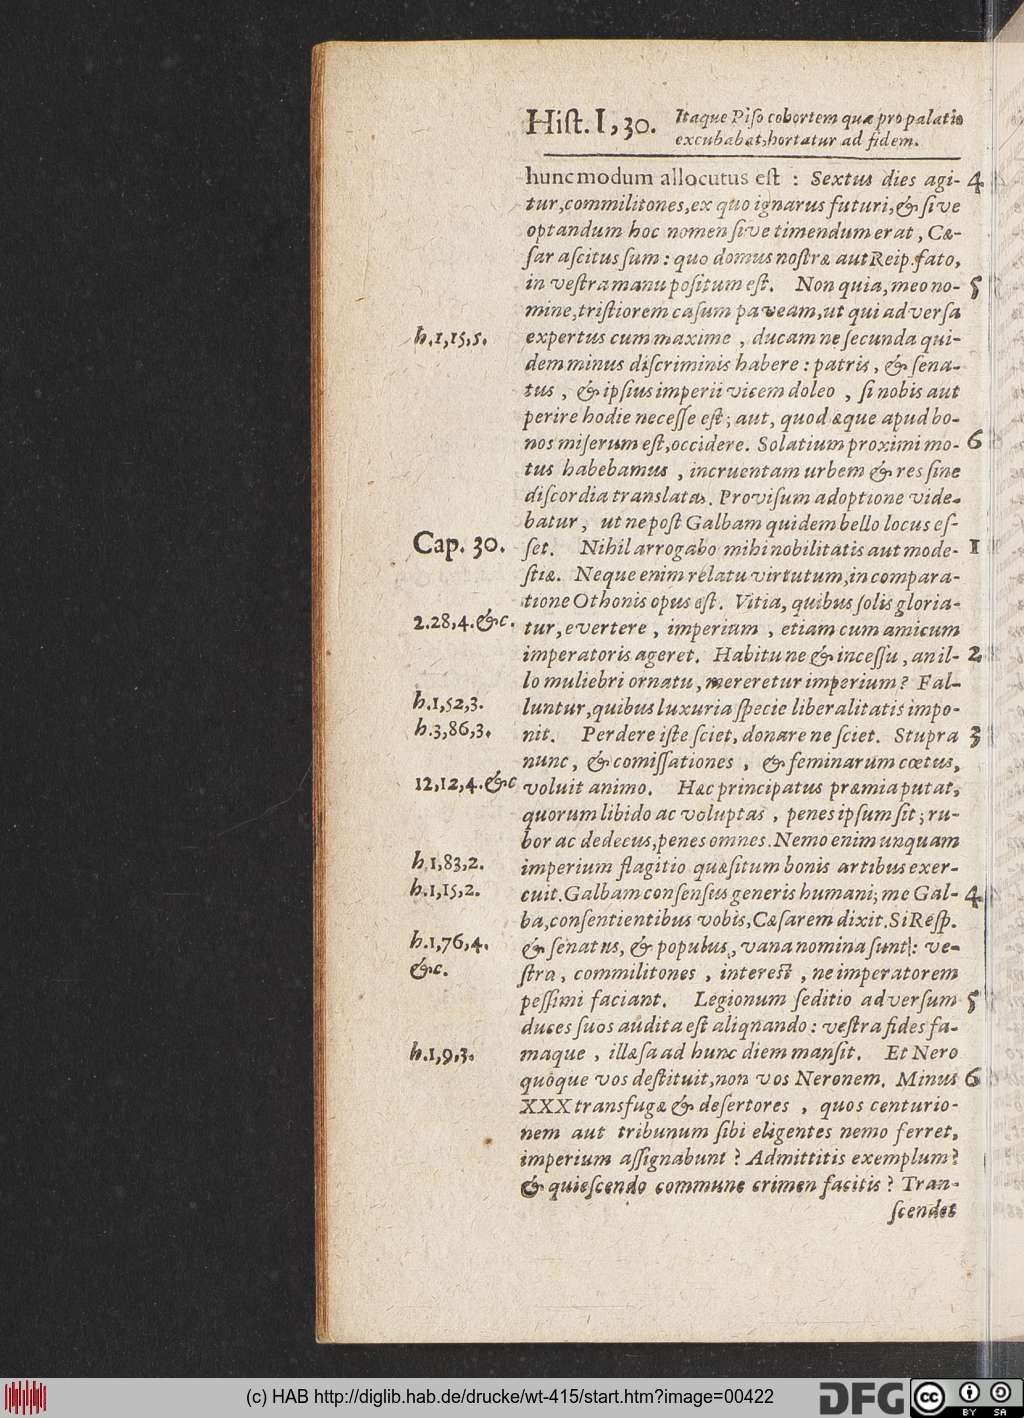 Hist. I, 30. Itaque Piso cohortem quæ pro palatio
excubabat, hortatur ad fidem.
hunc modum allocutus est : Sextus dies agi- 4
tur, commilitones, ex quo ignarus futuri, & sive
optandum hoc nomen sive timendum erat, Cæ-
sar ascitus sum : quo domus nostræ aut Reip. fato,
in vestra manu positum est. Non quia, meo no- 5
mine, tristiorem casum paveam, ut qui adversa
h. 1, 15, 5. expertus cum maxime, ducam ne secunda qui-
dem minus discriminis habere : patris, & sena-
tus, & ipsius imperii vicem doleo, si nobis aut
perire hodie necesse est; aut, quod æque apud bo-
nos miserum est, occidere. Solatium proximi mo- 6
tus habebamus, incruentam urbem & res sine
discordia translatas. Provisum adoptione vide-
batur, ut ne post Galbam quidem bello locus es-
Cap. 30. set. Nihil arrogabo mihi nobilitatis aut mode- 1
stiæ. Neque enim relatu virtutum, in compara-
tione Othonis opus est. Vitia, quibus solis gloria-
2. 28, 4. &c. tur, evertere, imperium, etiam cum amicum
imperatoris ageret. Habitu ne & incessu, an il- 2
lo muliebri ornatu, mereretur imperium? Fal-
h. 1, 52, 3. luntur, quibus luxuria specie liberalitatis impo-
h. 3, 86, 3. nit. Perdere iste sciet, donare ne sciet. Stupra 3
nunc, & comissationes, & feminarum cœtus,
12, 12, 4. &c voluit animo. Hæc principatus præmia putat,
quorum libido ac voluptas, penes ipsum sit; ru-
bor ac dedecus, penes omnes. Nemo enim unquam
h. 1, 83, 2. imperium flagitio quæsitum bonis artibus exer-
h. 1, 15, 2. cuit. Galbam consensus generis humani; me Gal- 4
ba, consentientibus vobis, Cæsarem dixit. Si Resp.
h. 1, 76, 4. & senatus, & populus, vana nomina sunt : ve-
&c. stra, commilitones, interest, ne imperatorem
pessimi faciant. Legionum seditio adversum 5
duces suos audita est aliqnando : vestra fides fa-
h. 1, 9, 3. maque, illæsa ad hunc diem mansit. Et Nero
quoque vos destituit, non vos Neronem. Minus 6
XXX transfugæ & desertores, quos centurio-
nem aut tribunum sibi eligentes nemo ferret,
imperium assignabunt? Admittitis exemplum?
& quiescendo commune crimen facitis? Tran-
scendet
(c) HAB http://diglib.hab.de/drucke/wt-415/start.htm?image=00422
DFG
cc BY SA